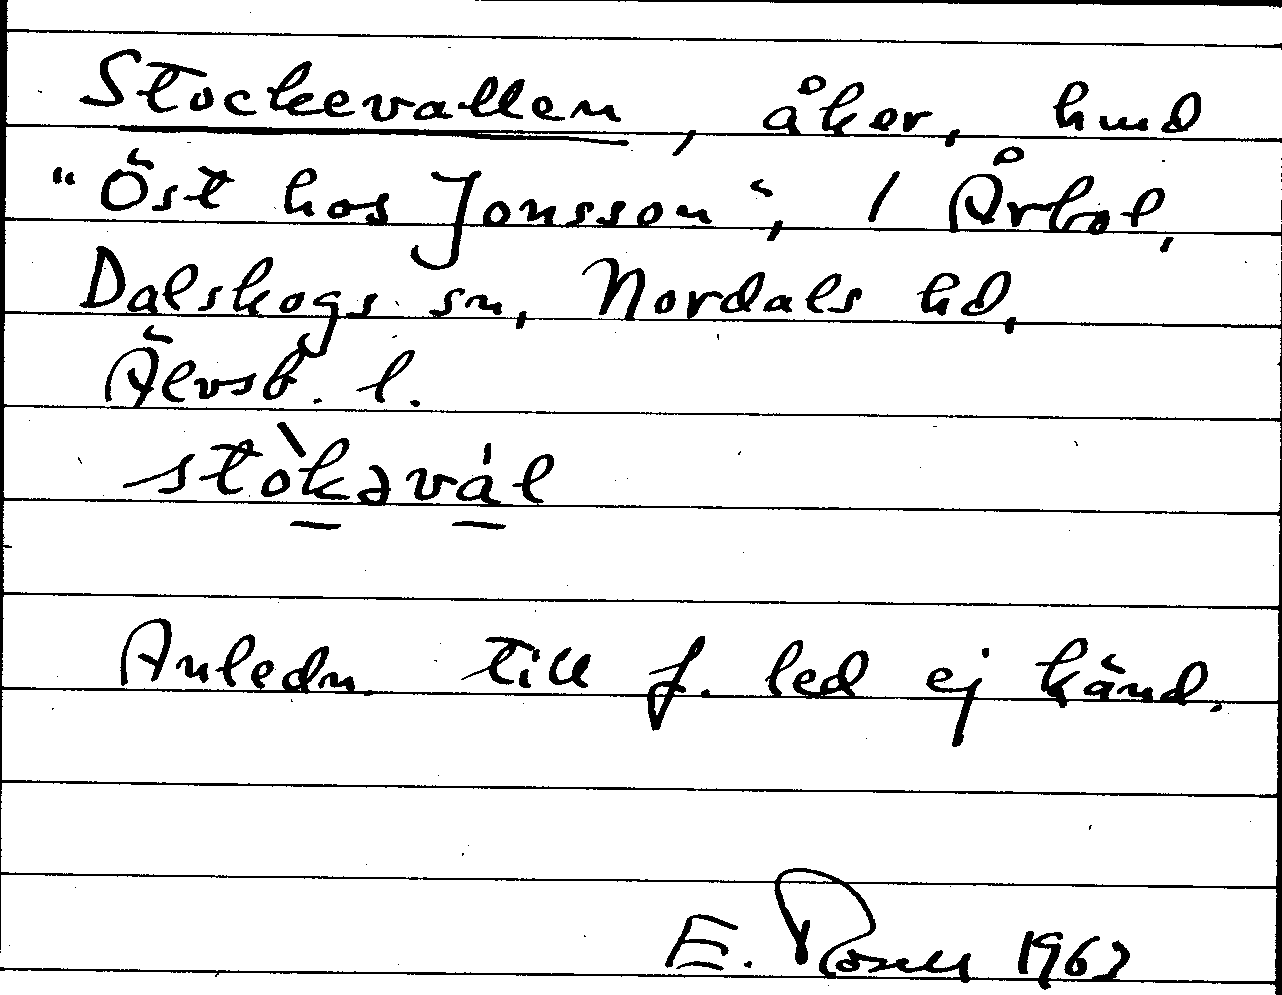 Stockevallen, åker, hmd
"Öst hos Jonsson", i Årbol,
Dalskogs sn, Nordals hd,
Älvsb. l.
stòkəvál
Anledn. till f. led ej känd.
E. 1963